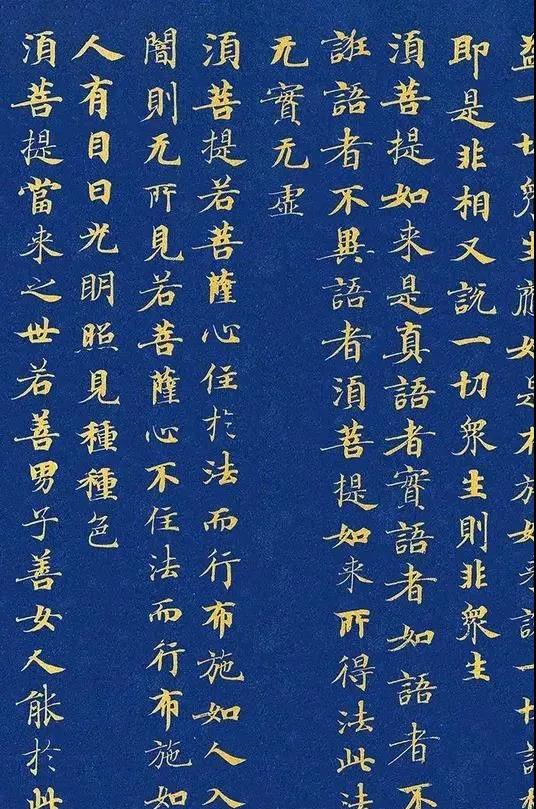 益一切衆生應如是布施如来説一切諸相
即是非相又説一切衆生則非衆生
須菩提如来是真語者實語者如語者不
誑語者不異語者須菩提如来所得法此法
无實无虚
須菩提若菩薩心住於法而行布施如人入
闇則无所見若菩薩心不住法而行布施如
人有目日光明照見種種色
須菩提當来之世若善男子善女人能於此